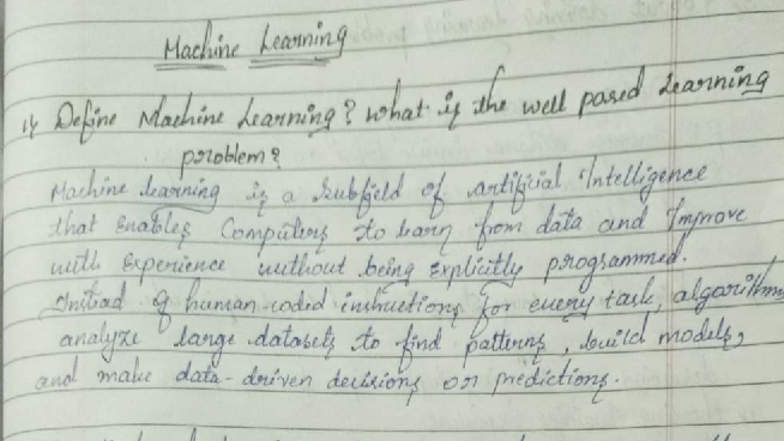 Machine Learning
1) Define Machine Learning? what is the well posed Learning
problem?
Machine learning is a subfield of artificial Intelligence
that Enables Computers to learn from data and Improve
with Experience without being Explicitly programmed.
Instead of human-coded instructions for every task, algorithms
analyze large datasets to find patterns, build models,
and make data-driven decisions or predictions.